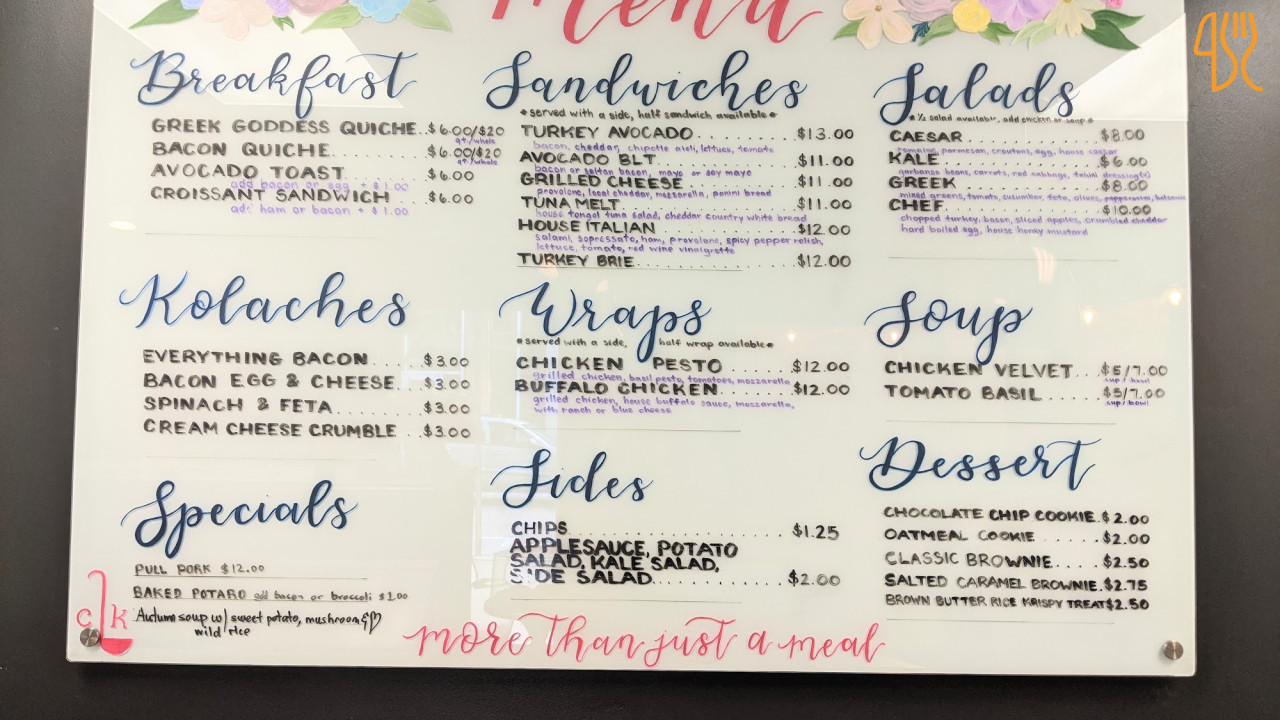 menu
Breakfast
GREEK GODDESS QUICHE..$6.00/$20
qt./whole
BACON QUICHE....$6.00/$20
qt./whole
AVOCADO TOAST.....$6.00
add bacon or egg + $1.00
CROISSANT SANDWICH...$6.00
add ham or bacon + $1.00
Kolaches
EVERYTHING BACON....$3.00
BACON EGG & CHEESE...$3.00
SPINACH & FETA.......$3.00
CREAM CHEESE CRUMBLE ..$3.00
Specials
PULL PORK $12.00
BAKED POTARO add bacon or broccoli $1.00
Autumn soup w/ sweet potato, mushroom &
wild rice
Sandwiches
*served with a side, half sandwich available*
TURKEY AVOCADO........$13.00
bacon, cheddar, chipotle aioli, lettuce, tomato
AVOCADO BLT..........$11.00
bacon or seitan bacon, mayo or soy mayo
GRILLED CHEESE........$11.00
provolone, local cheddar, mozzarella, panini bread
TUNA MELT............$11.00
house tongol tuna salad, cheddar country white bread
HOUSE ITALIAN.........$12.00
salami, sopressato, ham, provolone, spicy pepper relish,
lettuce, tomato, red wine vinaigrette
TURKEY BRIE..........$12.00
Wraps
*served with a side, half wrap available*
CHICKEN PESTO.....$12.00
grilled chicken, basil pesto, tomatoes, mozzarella
BUFFALO CHICKEN.....$12.00
grilled chicken, house buffalo sauce, mozzarella,
with ranch or blue cheese
Sides
CHIPS...............$1.25
APPLESAUCE, POTATO
SALAD, KALE SALAD,
SIDE SALAD..........$2.00
Salads
*½ salad available, add chicken or soup*
CAESAR..........$8.00
romaine, parmesan, croutons, egg, house caesar
KALE............$6.00
garbanzo beans, carrots, red cabbage, tahini dressing(v)
GREEK...........$8.00
mixed greens, tomato, cucumber, feta, olives, pepperoncini, balsamic
CHEF............$10.00
chopped turkey, bacon, sliced apples, crumbled cheddar
hard boiled egg, house honey mustard
Soup
CHICKEN VELVET...$5/7.00
cup/bowl
TOMATO BASIL.....$5/7.00
cup/bowl
Dessert
CHOCOLATE CHIP COOKIE.$2.00
OATMEAL COOKIE......$2.00
CLASSIC BROWNIE.....$2.50
SALTED CARAMEL BROWNIE.$2.75
BROWN BUTTER RICE KRISPY TREAT$2.50
c k
more than just a meal